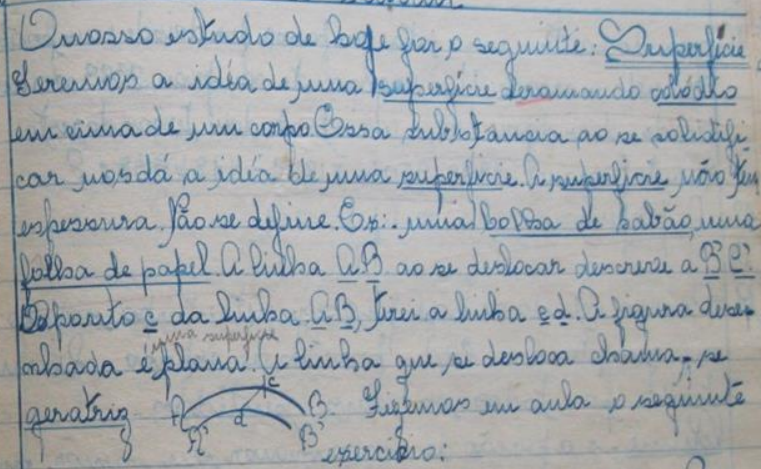 O nosso estudo de hoje foi o seguinte: Superfície
Teremos a idéa de uma superfície derramando colódio
em cima de um corpo Essa substancia ao se solidifi-
car nos dá a idéa de uma superfície. A superfície não tem
espessura. Não se define. Ex: uma bolha de sabão, uma
folha de papel. A linha AB ao se deslocar descreve a B'C'.
Do ponto c da linha AB, tirei a linha cd. A figura dese-
uma superfície
nhada é plana. A linha que se desloca chama-se
geratriz
A A' c d B B'
Fizemos em aula o seguinte
exercício: